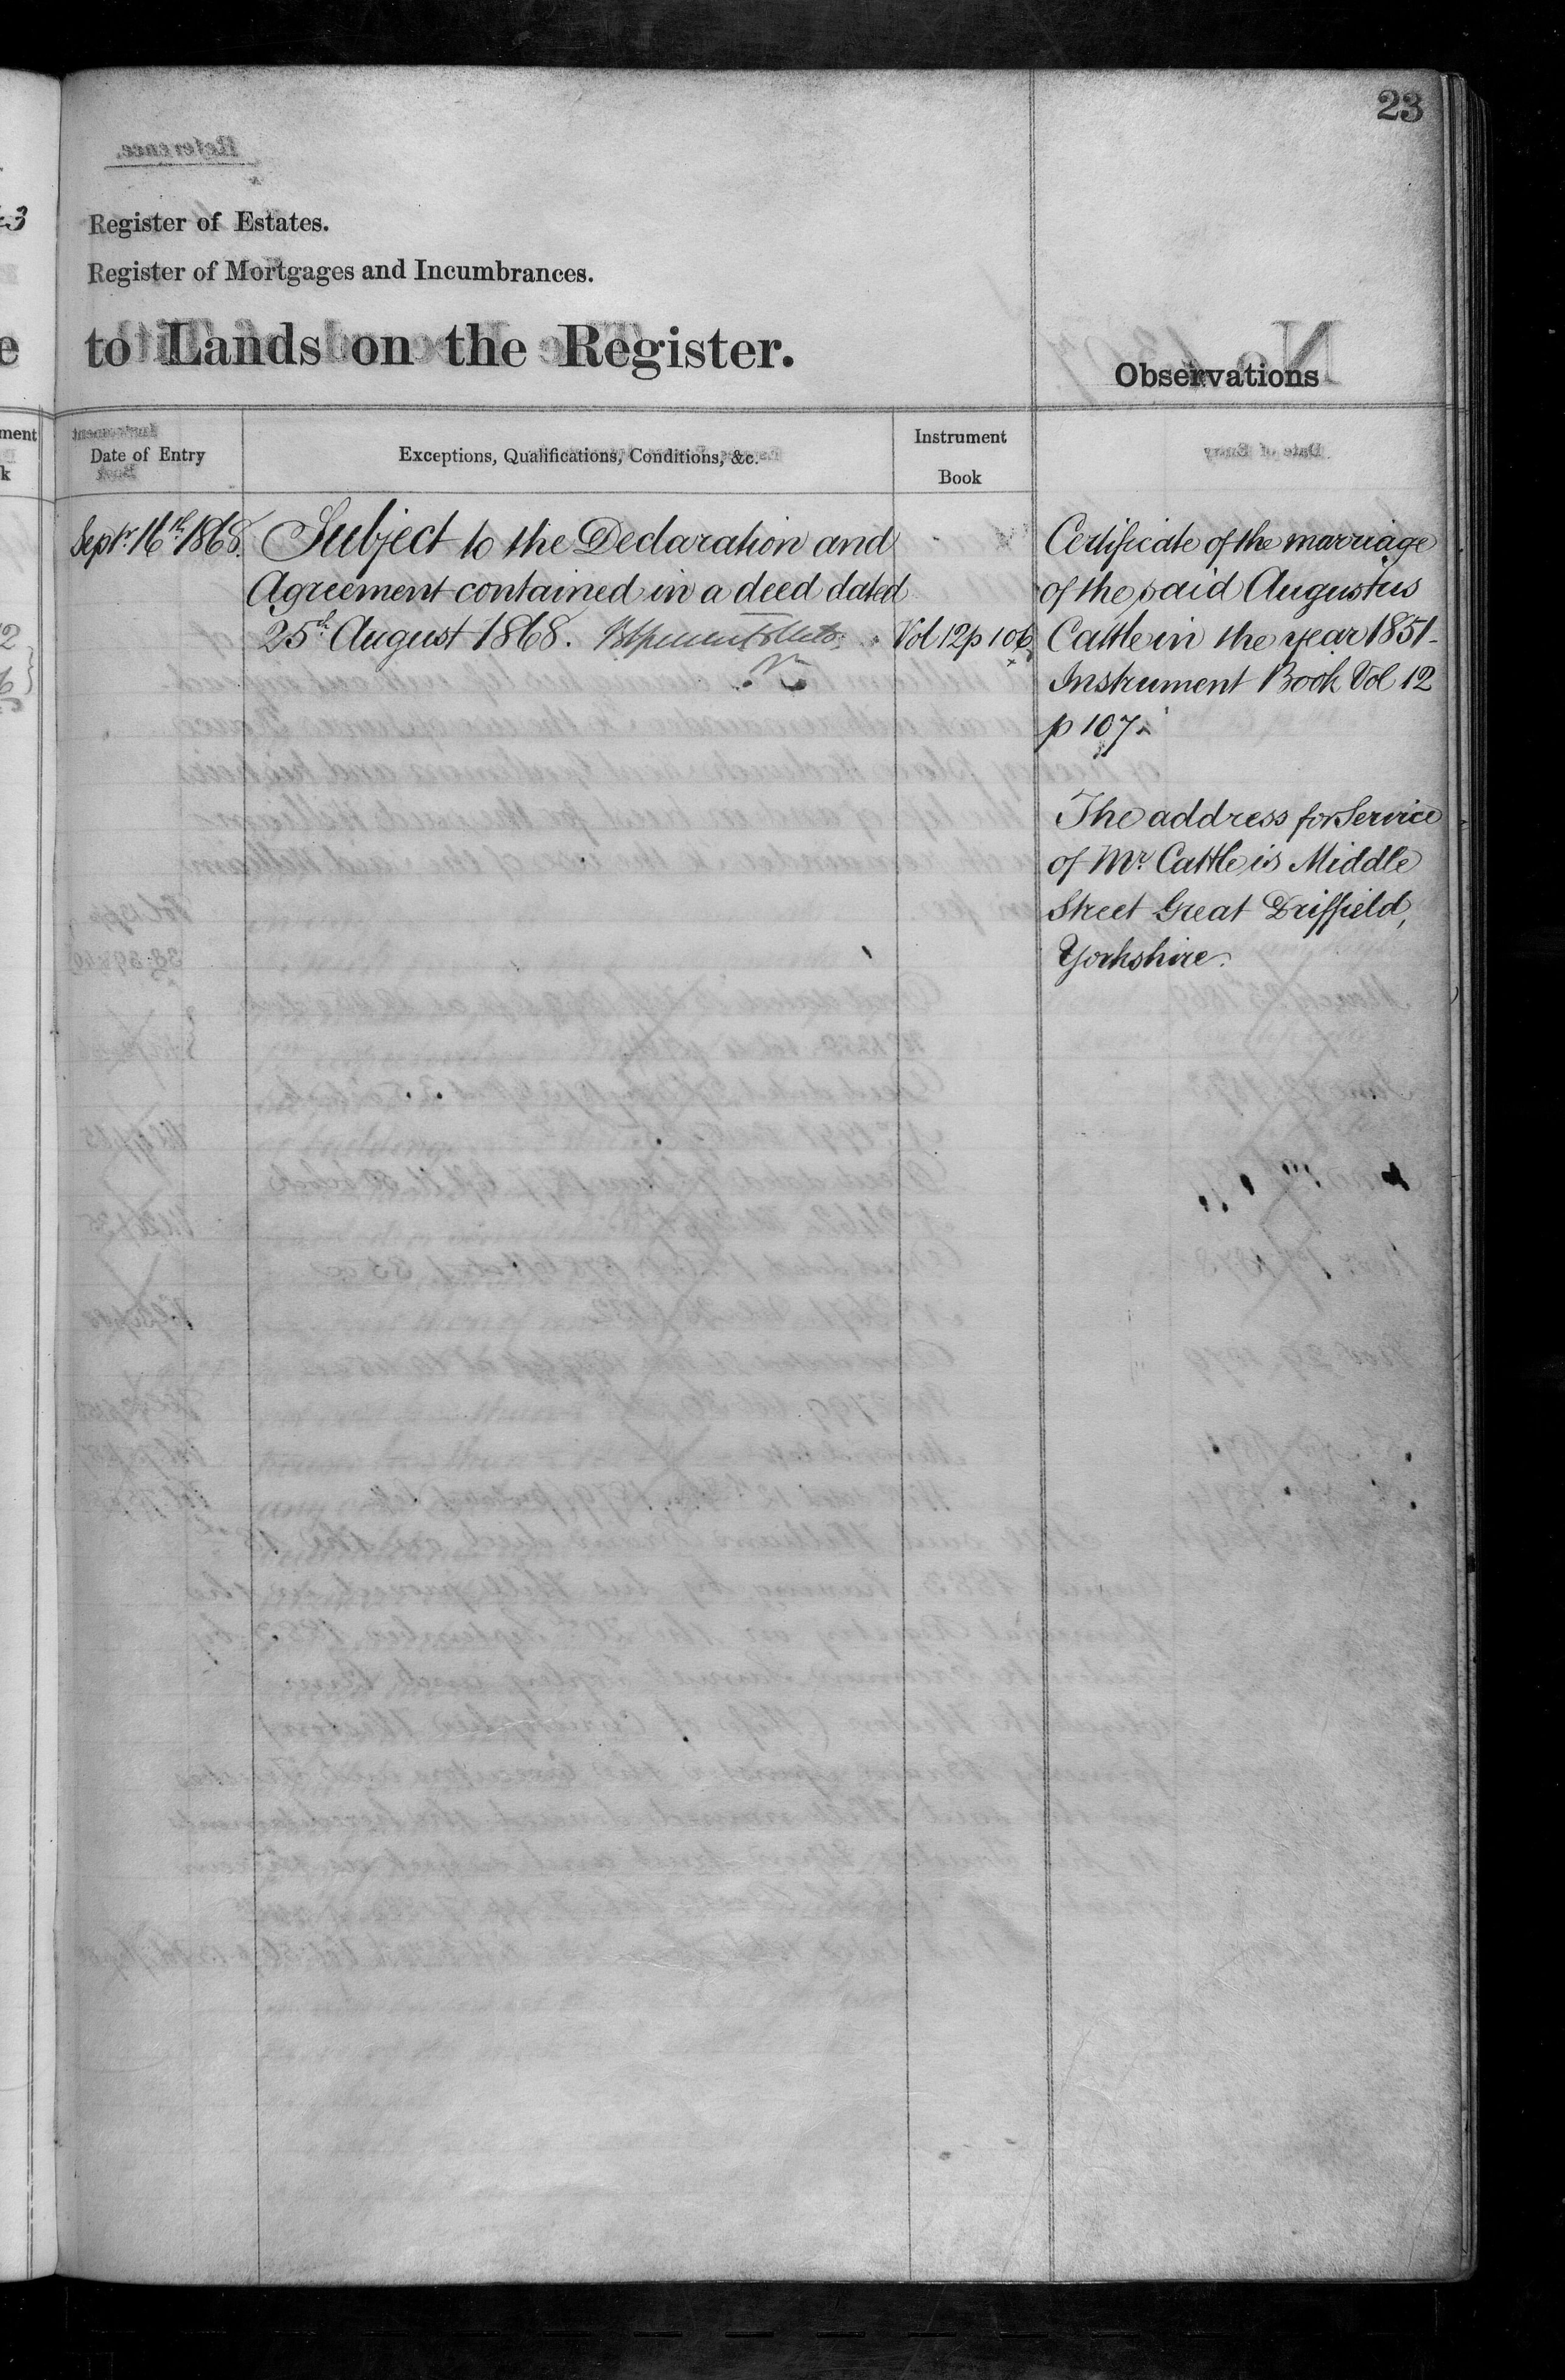 23
Register of Estates.
Register of Mortgages and Incumbrances.
to Lands on the Register.
Observations
Date of Entry
Exceptions, Qualifications, Conditions, &c.
Instrument
Book
Septr. 16th 1868.
Subject to the Declaration and
Agreement contained in a deed dated
25th August 1868.
Vol 12 p 106
Certificate of the marriage
of the said Augustus
Cattle in the year 1851-
Instrument Book Vol 12
p 107.
The address for Service
of Mr Cattle is Middle
Street Great Driffield,
Yorkshire.